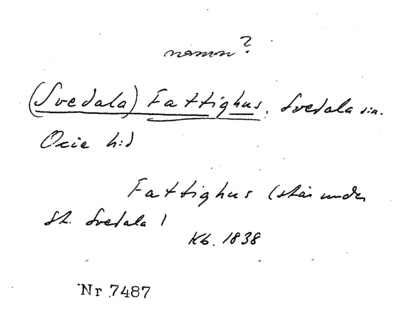 namn?
(Svedala) Fattighus, Svedala sn.
Oxie hd
Fattighus (står under
St. Svedala)
Kb. 1838
Nr 7487